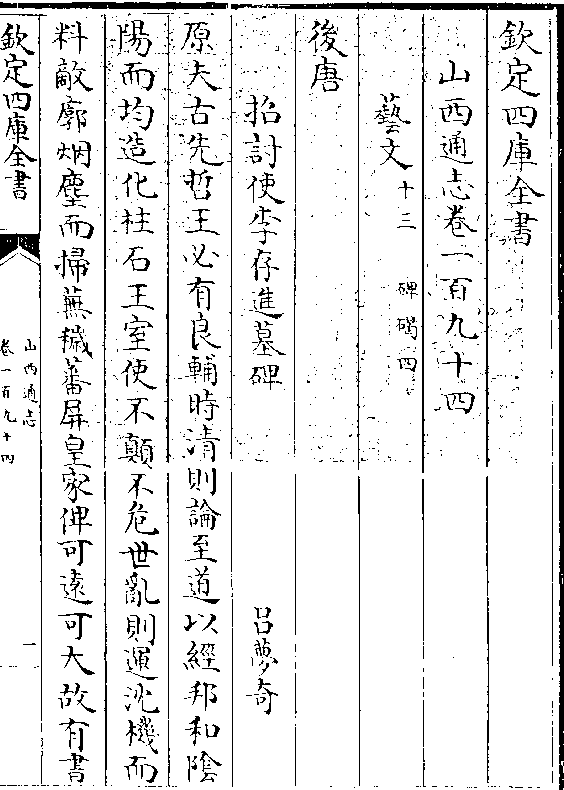 欽定四庫全書
山西通志卷一百九十四
藝文十三　碑碣四
後唐
招討使李存進墓碑　吕夢奇
原夫古先哲王必有良輔時清則論至道以經邦和陰
陽而均造化柱石王室使不顛不危世亂則運沈機而
料敵廓烟塵而掃蕪穢蕃屏皇家俾可遠可大故有書
欽定四庫全書
山西通志
卷一百九十四
一